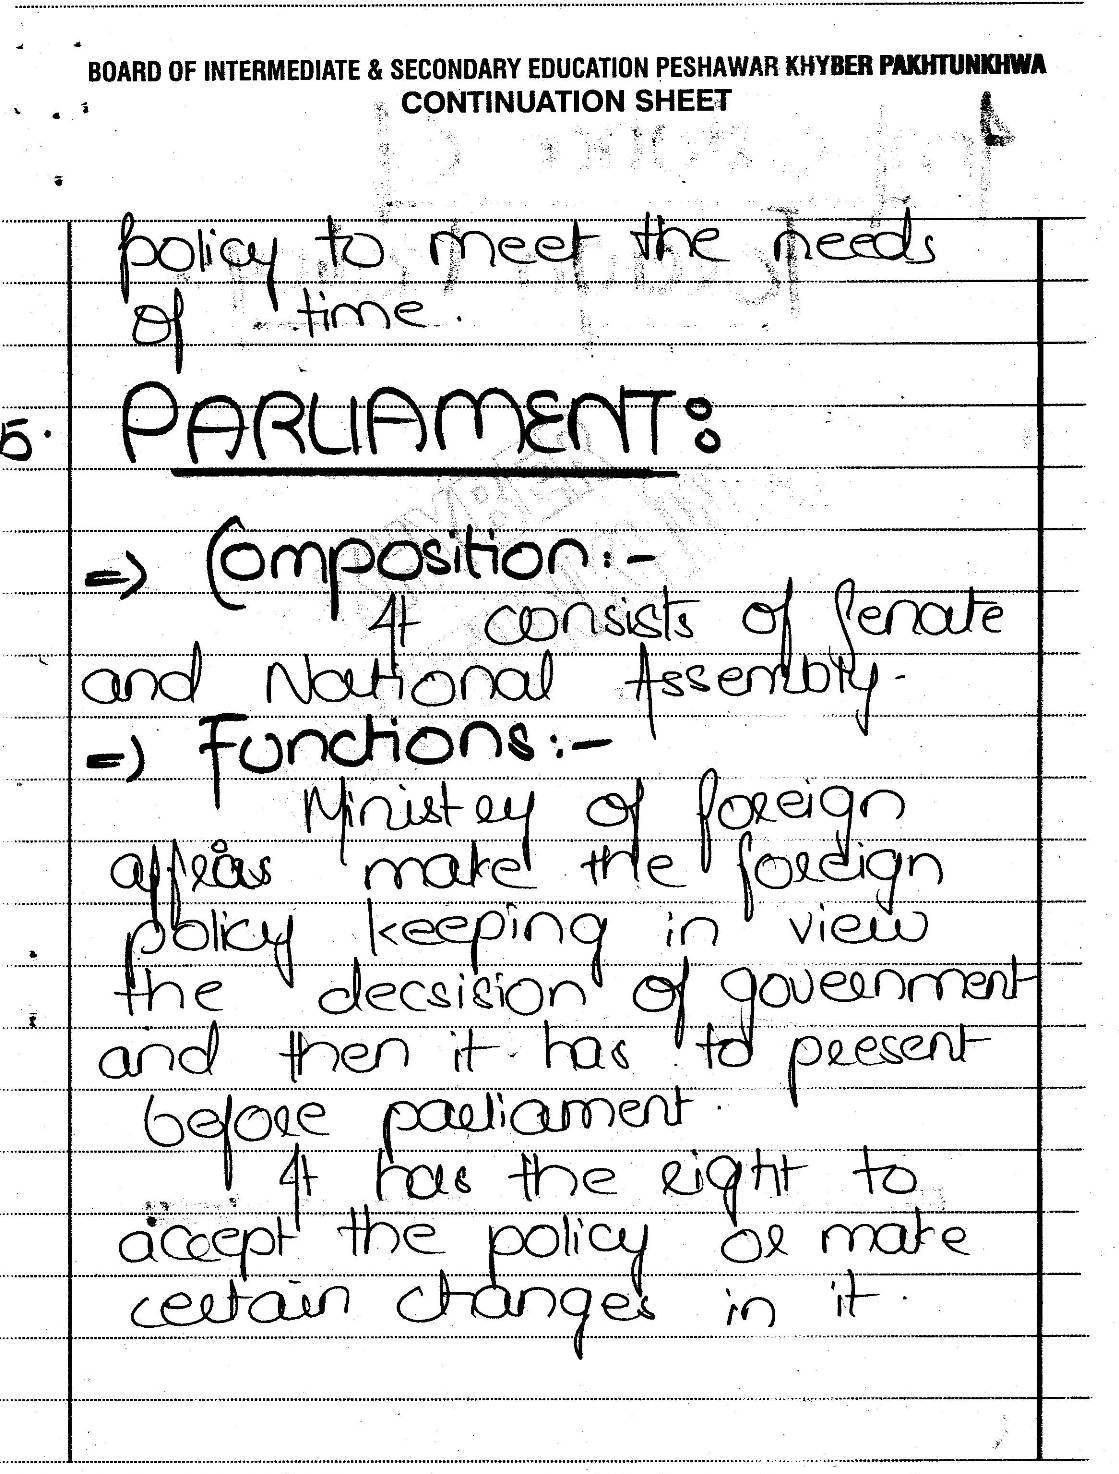 BOARD OF INTERMEDIATE & SECONDARY EDUCATION PESHAWAR KHYBER PAKHTUNKHWA
CONTINUATION SHEET
policy to meet the needs
of time.
5. PARLIAMENT:
=> Composition:-
It consists of Senate
and National Assembly.
=> Functions:-
Ministry of foreign
affrias make the foreign
policy keeping in view
the decsision of government
and then it has to present
before parliament.
It has the right to
accept the policy or make
certain changes in it.